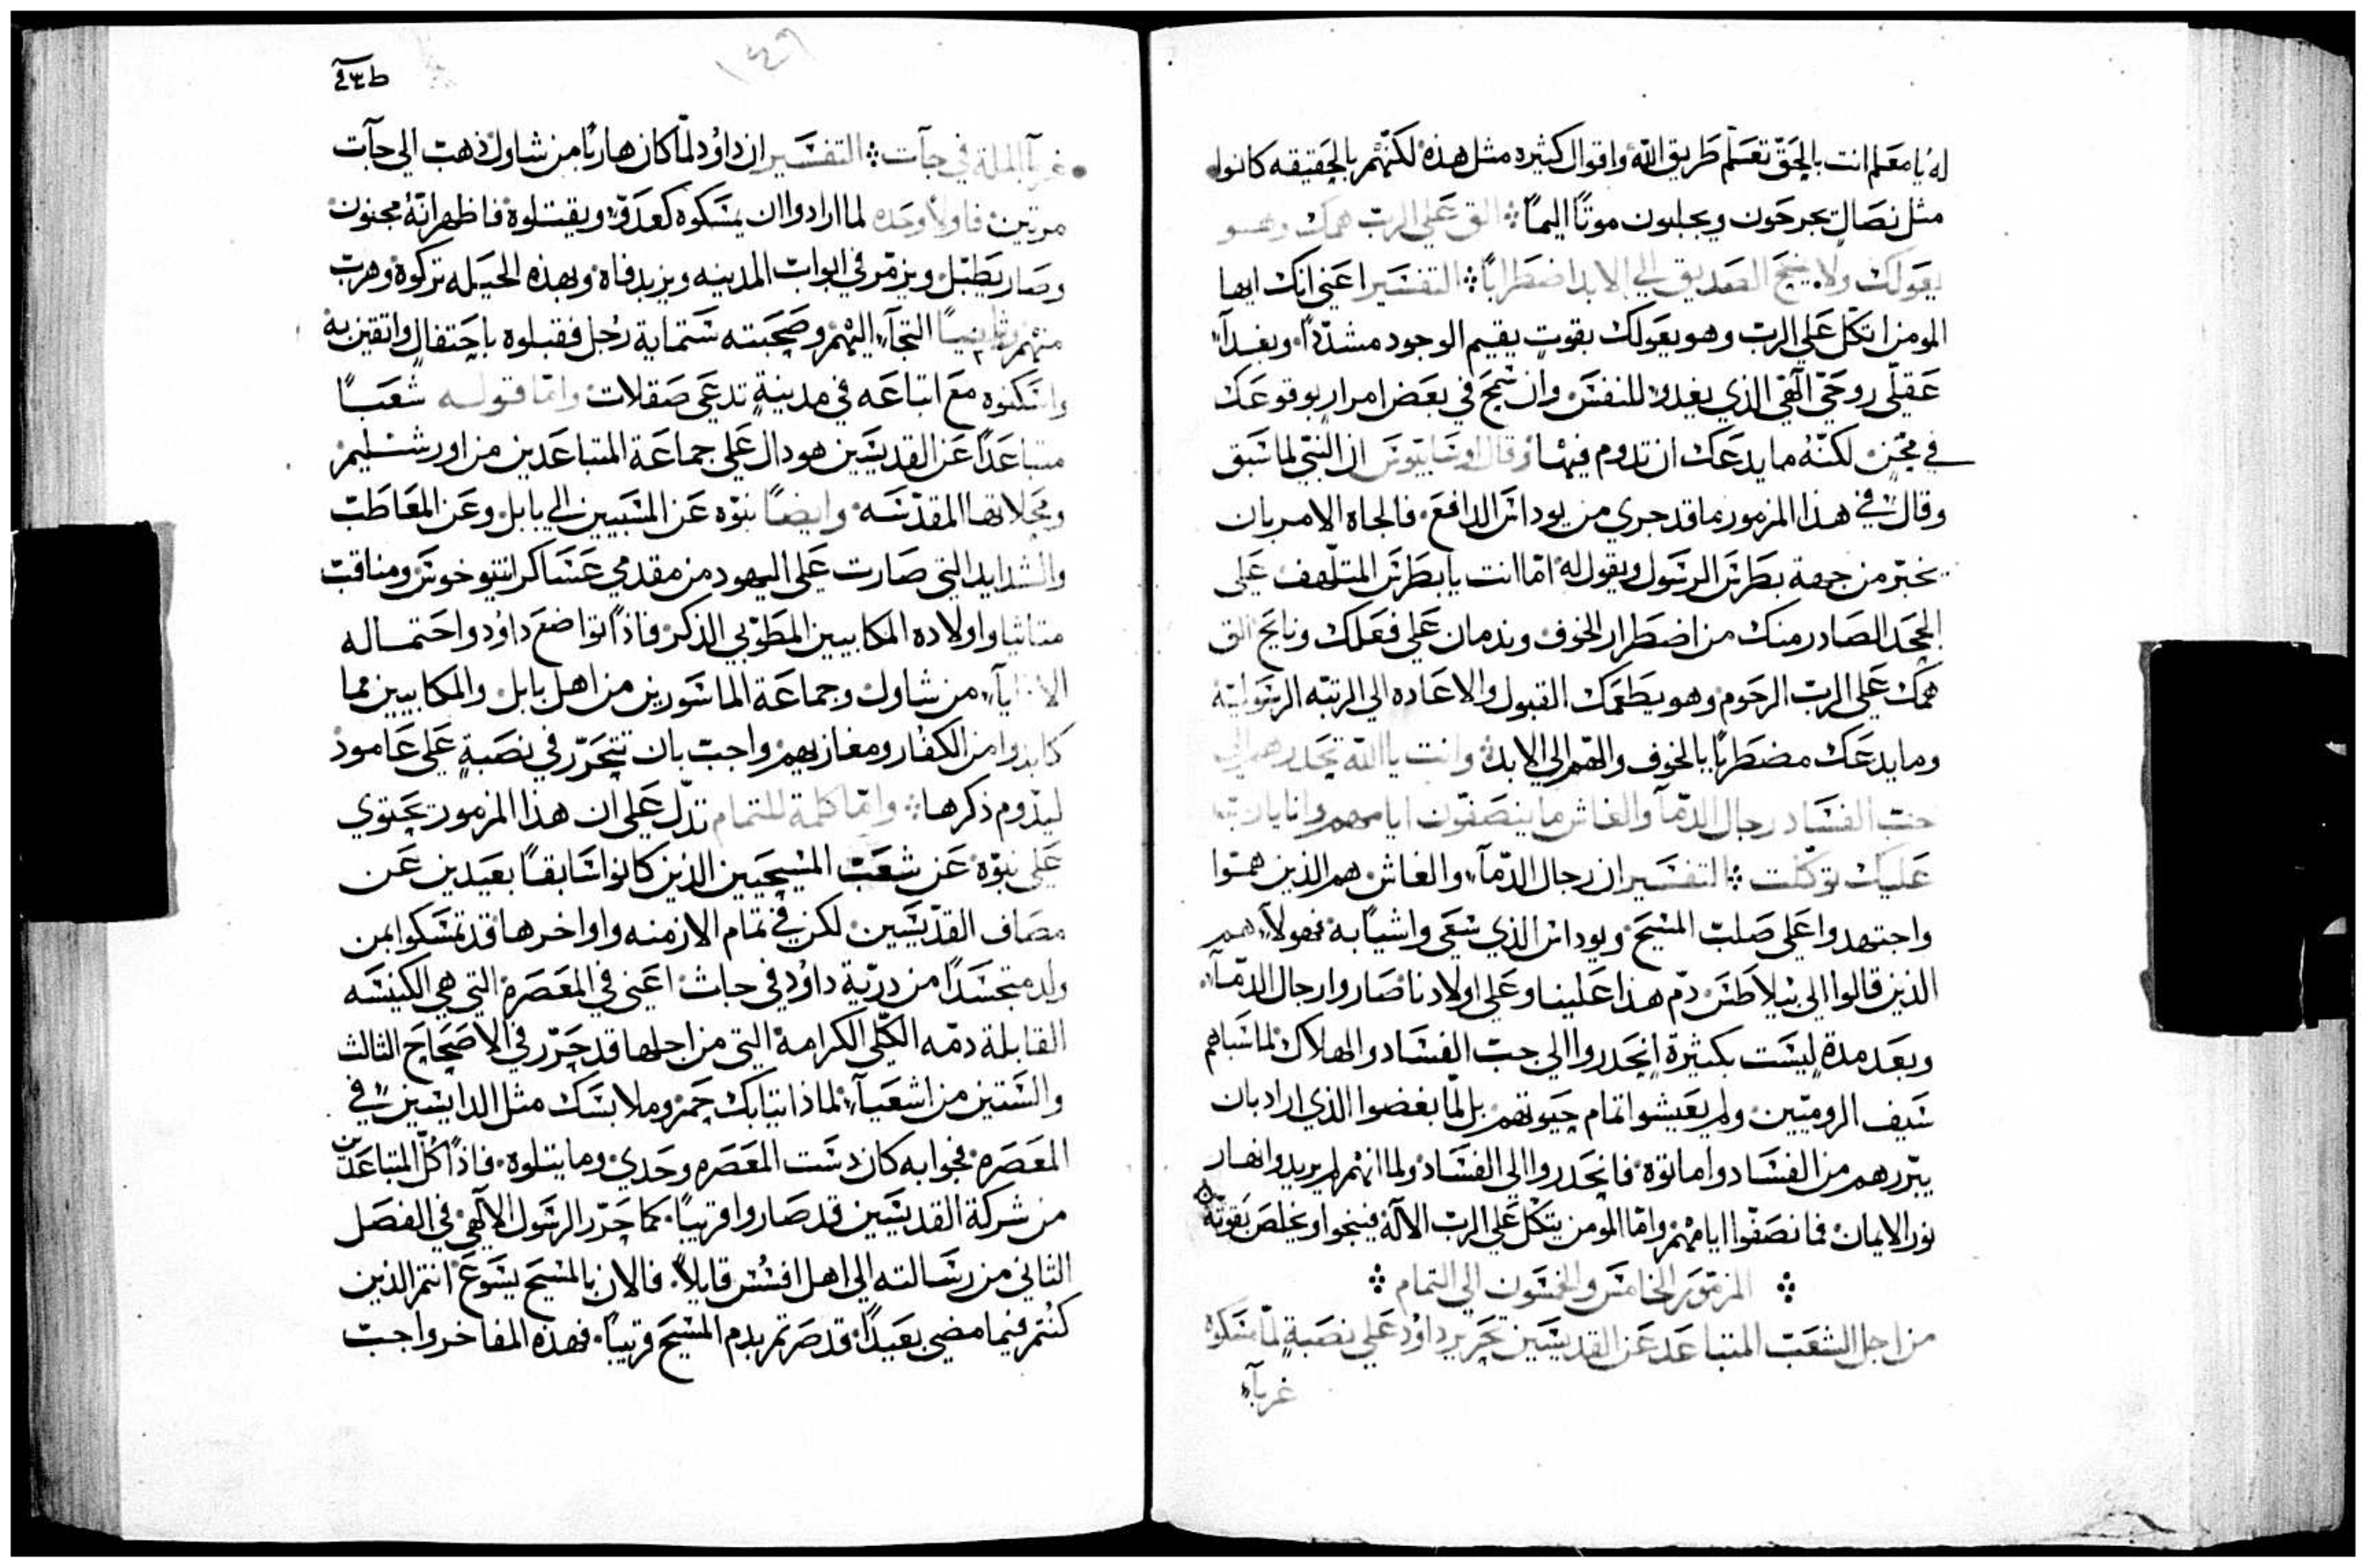 له يا معلم انت بالحق تعلم طريق الله واقوال كثيره مثل هذه لكنهم بالحقيقه كانوا
مثل نصال يجرحون ويجلبون موتًا اليمًا ܀ الق على الرب همك وهو
يعولك ولا ينيح الصديق الى الابد اضطرابًا ܀ التفسير اعني انك ايها
المومن اتكل على الرب وهو يعولك بقوت يقيم الوجود مشددًا وبغداء
عقلي روحي الهي الذي يغدو للنفس وان سمح في بعض امرار بوقوعك
في محن لكنه ما يدعك ان تدوم فيها وقال اوسابيوس ان النبي لما سبق
وقال في هذا المزمور ما قد جرى من يوداس الدافع فالجاه الامر بان
يخبر من جهة بطرس الرسول ويقول له اما انت يا بطرس المتلهف على
الجحد الصادر منك من اضطرار الخوف وندمان على فعلك ونايح الق
همك على الرب الرحوم وهو يطعمك القبول والاعاده الى الرتبه الرسولية
وما يدعك مضطربًا بالخوف والهم الى الابد وانت يا الله تحدرهم الى
جب الفساد رجال الدما والغاش ما ينصفون ايامهم وانا يا رب
عليك توكلت ܀ التفسير ان رجال الدمآء والغاش هم الذين همّوا
واجتهدوا على صلب المسيح ويوداس الذي سعى واشيًا به فهولاء هم
الذين قالوا الى بيلاطس دم هذا علينا وعلى اولادنا صاروا رجال الدمآء
وبعد مدة ليست بكثيرة انحدروا الى جب الفساد والهلاك لما سباهم
سيف الروميين ولم يعيشوا تمام حيوتهم بل لما بغضوا الذي اراد بان
يبررهم من الفساد واماتوه فانحدروا الى الفساد ولما انهم لم يريدوا نهار
نور الايمان فما نصفوا ايامهم واما المومن يتكل على الرب الاله فينجوا ويخلص بقوته
܀ المزمور الخامس والخمسون الى التمام ܀
من اجل الشعب المتباعد عن القديسين تحرير داود على نصبة لما مسكوه
غربآء
غربآ الملة في جآت ܀ التفسير ان داود لما كان هاربًا من شاول ذهب الى جآت
مرتين فاولًا وحده لما ارادوا ان يمسكوه كعدو ويقتلوه فاظهر انه مجنون
وصار يطبل ويزمر في ابواب المدينه ويزبد فاه وبهذه الحيله تركوه وهرب
منهم وثانيًا التجآء اليهم وصحبته ستماية رجل فقبلوه باحتفال واتقين به
واسكنوه مع اتباعه في مدينة تدعى صقلات واما قوله شعبًا
متباعدًا عن القديسين هو دال على جماعة المتباعدين من اورشليم
ومحلاتها المقدسه وايضًا نبوه عن المسبيين الى بابل وعن المعاطب
والشدايد التي صارت على اليهود من مقدمي عساكر انتيوخوس ومناقب
متاثيا واولاده المكابيين المطوبي الذكر فاذًا تواضع داود واحتماله
الاذايآء من شاول وجماعة الماسورين من اهل بابل والمكابيين مما
كابدوا من الكفار ومغازيهم واجب بان تتحرر في نصبة على عامود
ليدوم ذكرها ܀ واما كلمة للتمام تدل على ان هذا المزمور يحتوي
على نبوه عن شعب المسيحيين الذين كانوا سابقًا بعيدين عن
مصاف القديسين لكن في تمام الازمنه واواخرها قد تمسكوا بمن
ولد متجسدًا من ذرية داود في جاث اعني في المعصرة التي هي الكنيسه
القابلة دمه الكلي الكرامة التي من اجلها قد حرر في الاصحاح الثالث
والستين من اشعيآء لماذا ثيابك حمر وملابسك مثل الدايسين في
المعصره فجوابه كان دست المعصره وحدي وما يتلوه فاذًا كل المتباعدين
من شركة القديسين قد صاروا قريبًا كما حرر الرسول الالهي في الفصل
الثاني من رسالته الى اهل افسس قايلًا فالان بالمسيح يسوع انتم الذين
كنتم فيما مضى بعيدًا قد صرتم بدم المسيح قريبًا فهذه المفاخر واجب